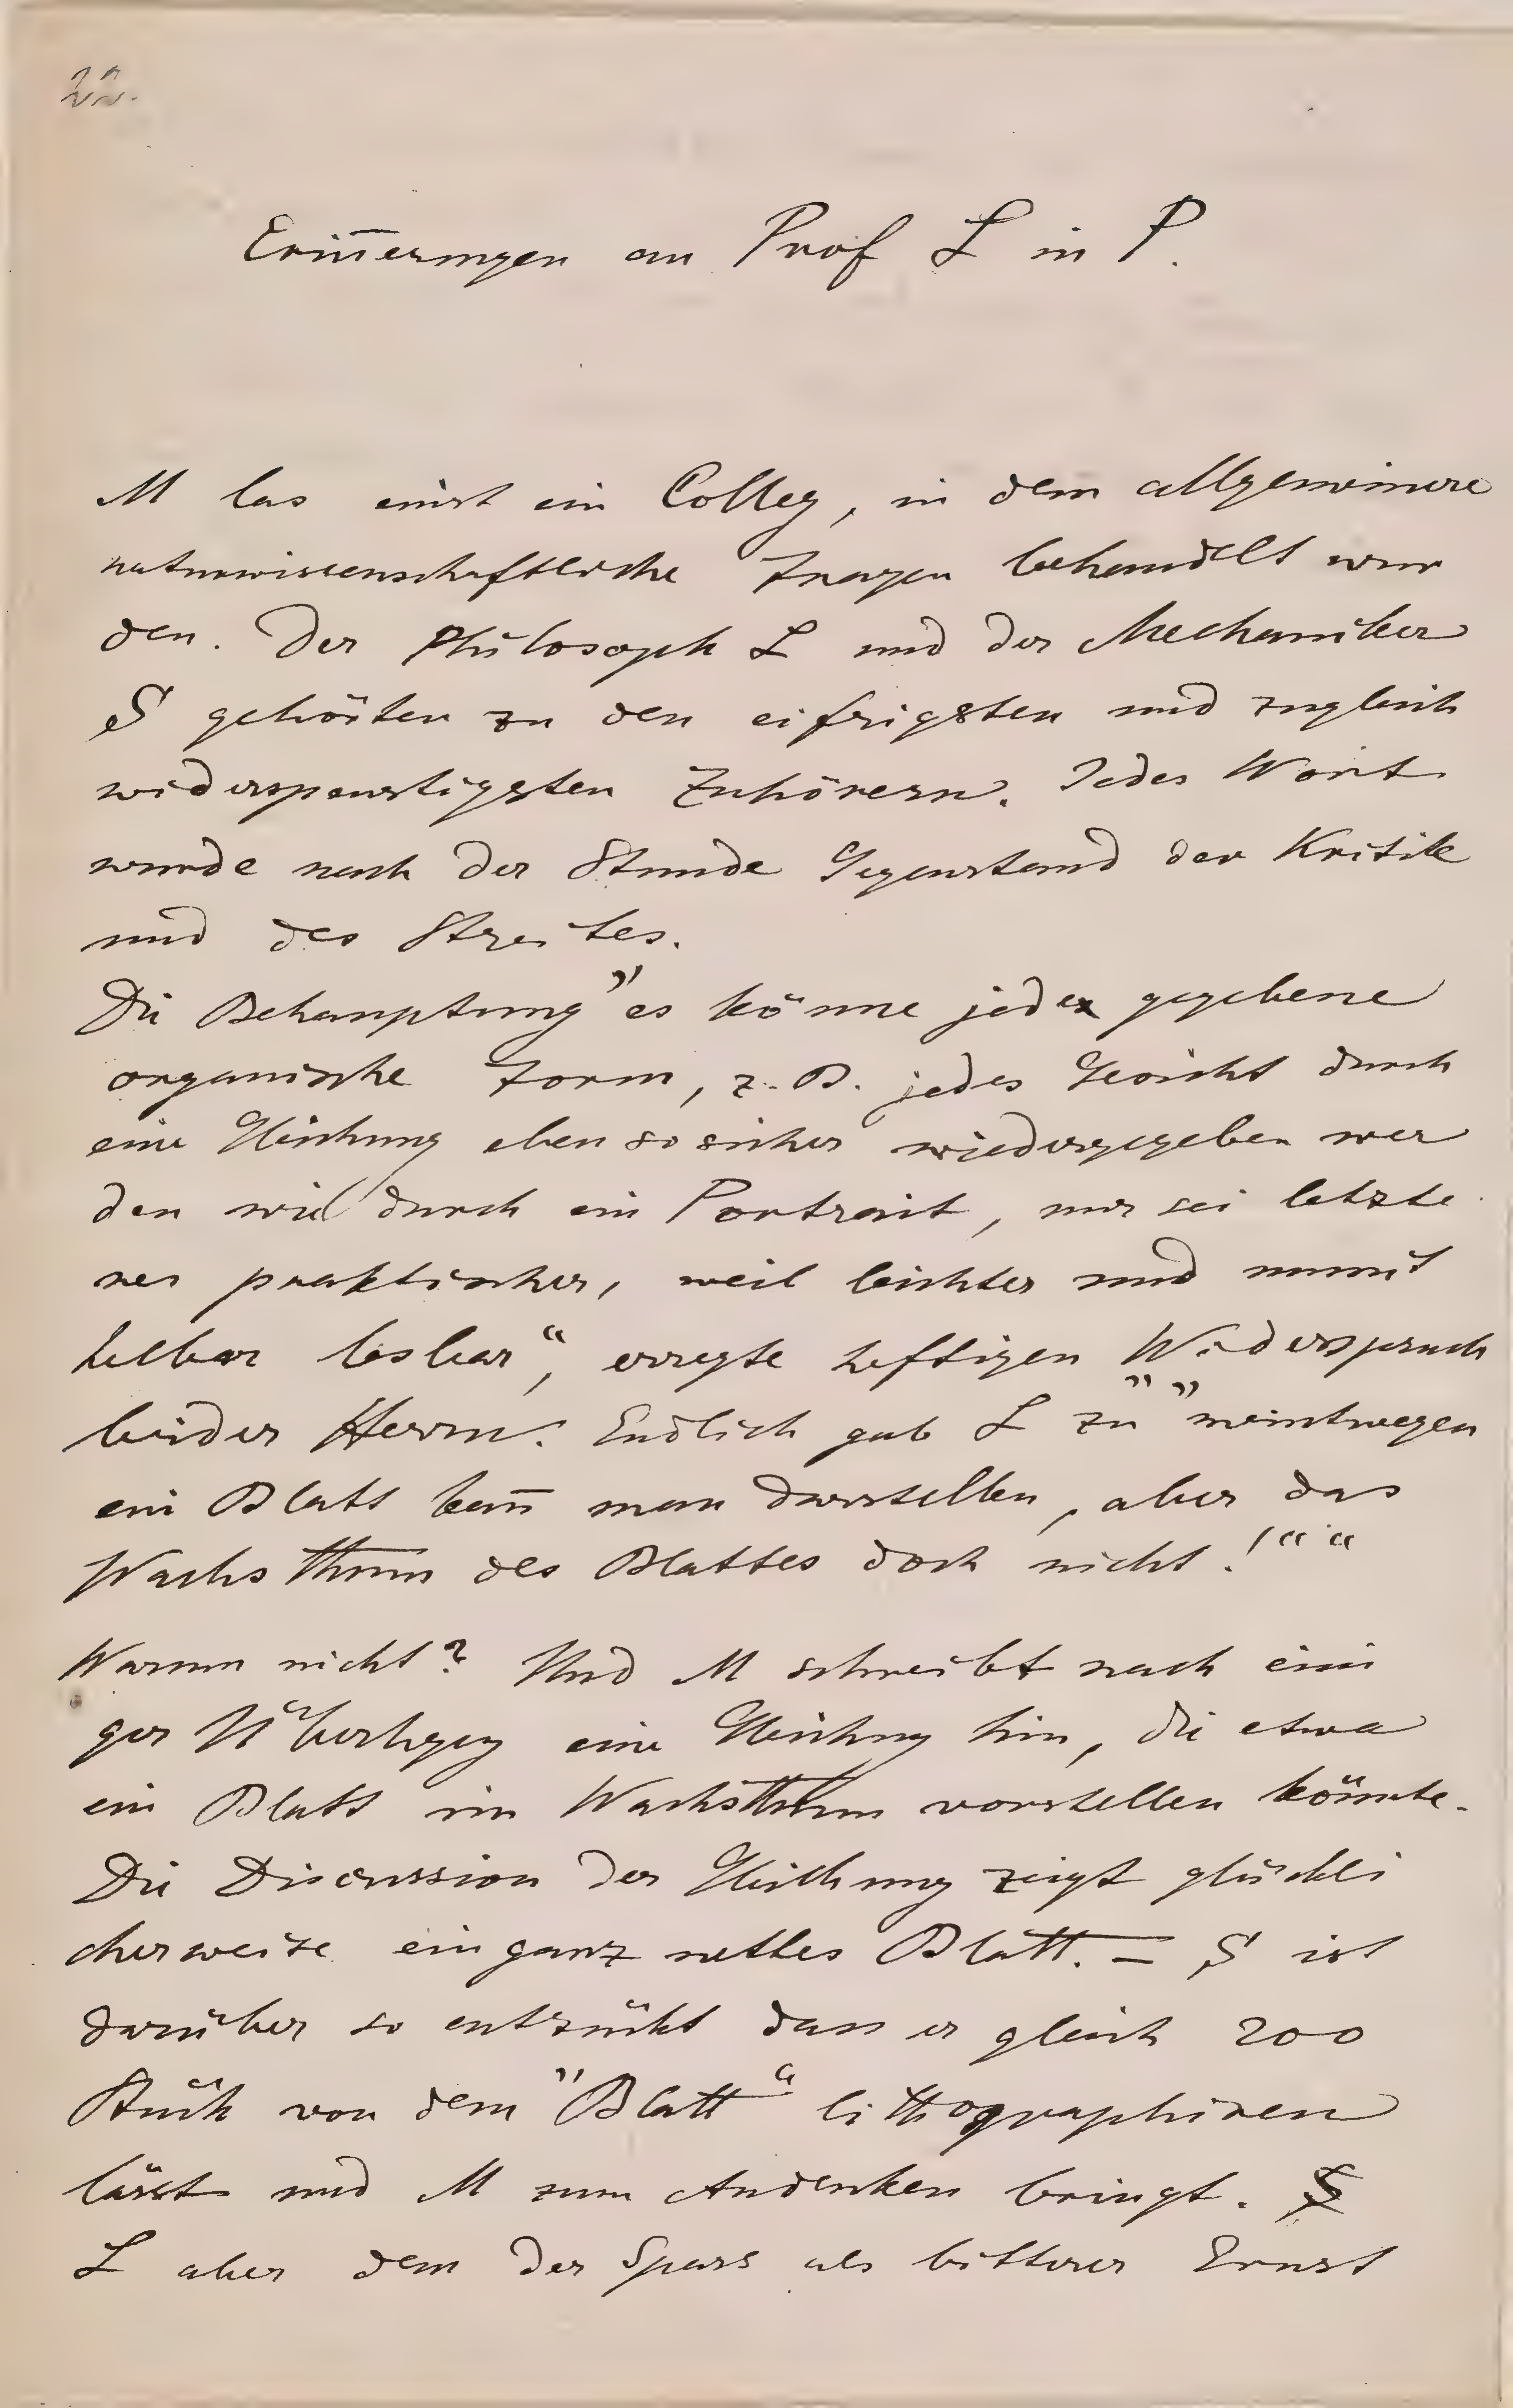 22.
Erin̄erungen an Prof L in P.
M las einst ein Colleg, in dem allgemeinere
naturwissenschaftliche Fragen behandelt wur
den. Der Philosoph L und der Mechaniker
S gehörten zu den eifrigsten und zugleich
widerspenstigsten Zuhörern. Jedes Wort
wurde nach der Stunde Gegenstand der Kritik
und des Streites.
Die Behauptung "es könne jede gegebene
organische Form, z. B. jedes Gesicht durch
eine Gleichung eben so sicher wiedergegeben wer
den wie durch ein Portrait, nur sei letzte
res praktischer, weil leichter und unmit
telbar lesbar", erregte heftigen Widerspruch
beider Herrn. Endlich gab L zu ""meintwegen
ein Blatt kan̄ man darstellen, aber das
Wachsthum des Blattes doch nicht!""
Warum nicht? Und M schreibt nach eini
ger Überlegng eine Gleichng hin, die etwa
ein Blatt im Wachsthum vorstellen könnte.
Die Discussion der Gleichung zeigt glückli
cherweise ein ganz nettes Blatt. = S ist
darüber so entzückt dass er gleich 200
Stück von dem "Blatt" lithographiren
lässt und M zum Andenken bringt.
L aber dem der Spass als bitterer Ernst